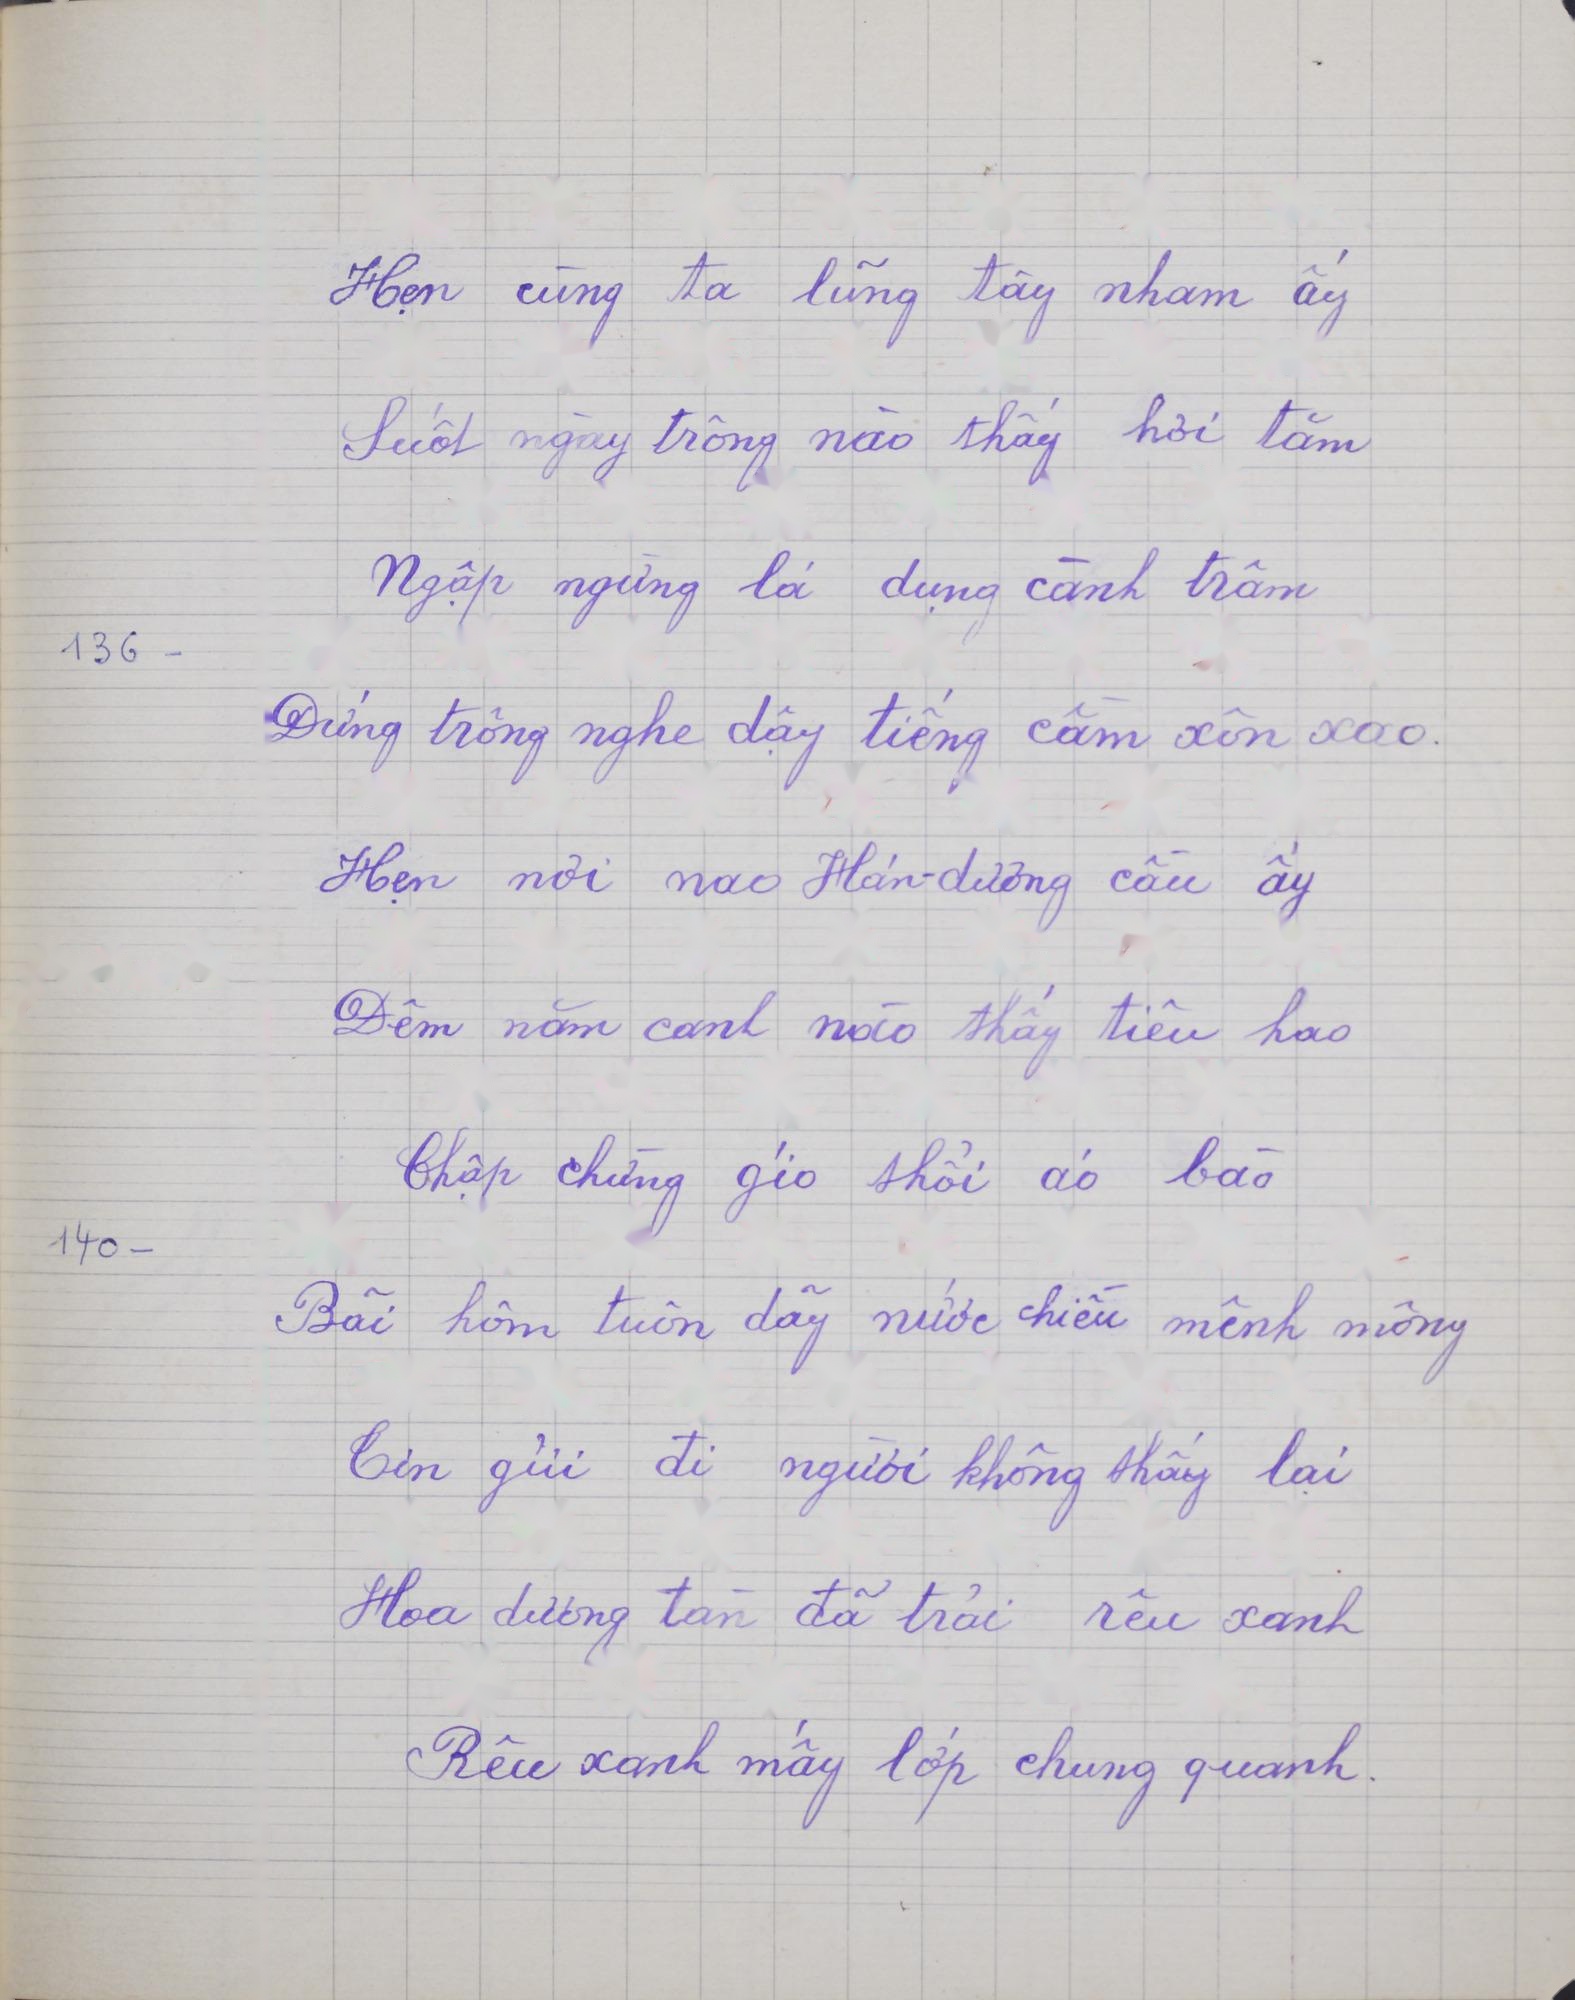 Hẹn cùng ta lũng tây nham ấy
Suốt ngày trông nào thấy hơi tăm
Ngập ngừng lá dụng cành trâm
136 -
Đứng trông nghe dậy tiếng cầm xôn xao.
Hẹn nơi nao Hán-dương cầu ấy
Đêm năm canh nào thấy tiêu hao
Chập chừng gió thổi áo bào
140 -
Bãi hôm tuôn dẫy nước chiều mênh mông
Tin gửi đi người không thấy lại
Hoa dương tàn đã trải rêu xanh
Rêu xanh mấy lớp chung quanh.